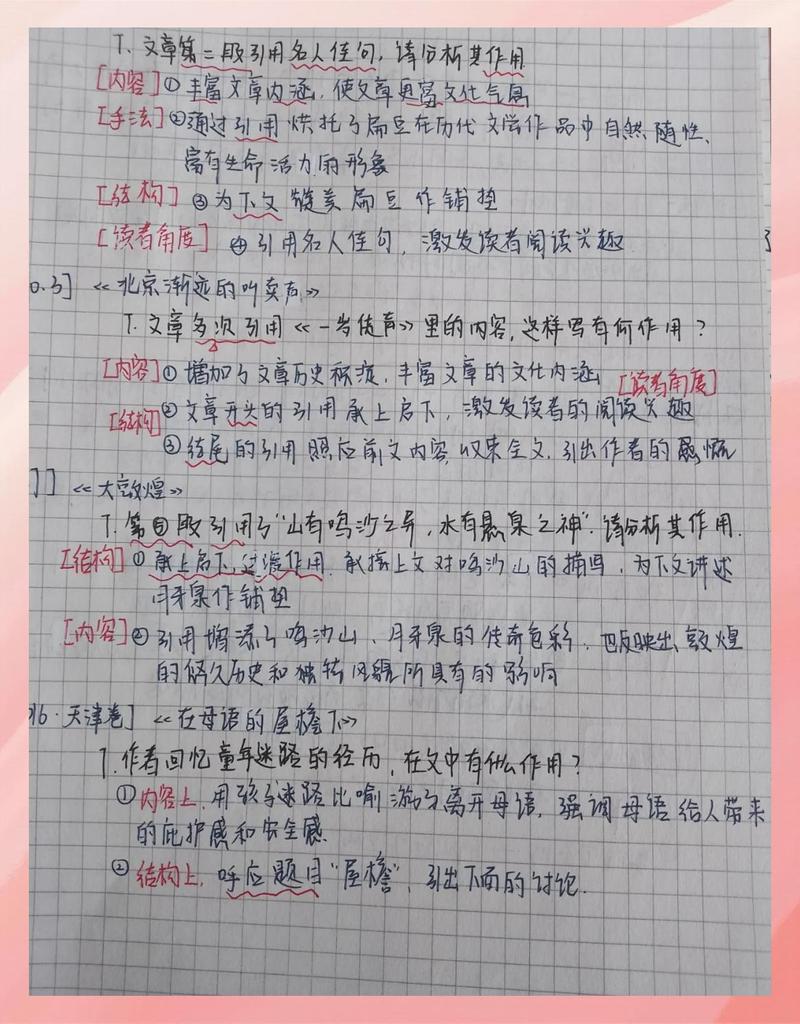 T. 文章第二段引用名人佳句,请分析其作用
[内容] ① 丰富文章内涵,使文章更富文化气息
[手法] ② 通过引用烘托了扁豆在历代文学作品中自然随性、
富有生命活力的形象
[结构] ③ 为下文赞美扁豆作铺垫
[读者角度] ④ 引用名人佳句,激发读者阅读兴趣
0.3] 《北京渐远的叫卖声》
T. 文章多次引用《一岁货声》里的内容,这样写有何作用?
[内容] ① 增加了文章历史积淀,丰富文章的文化内涵 [读者角度]
[结构] ② 文章开头的引用承上启下,激发读者的阅读兴趣
③ 结尾的引用照应前文内容,收束全文,引出作者的感慨
] 《大敦煌》
T. 第段引用了"山有鸣沙之异,水有悬泉之神".请分析其作用.
[结构] ① 承上启下,过渡作用.承接上文对鸣沙山的描写,为下文讲述
月牙泉作铺垫
[内容] ② 引用增添了鸣沙山、月牙泉的传奇色彩,也反映出敦煌
的悠久历史和独特风貌所具有的影响
16·天津卷] 《在母语的屋檐下》
T. 作者回忆童年迷路的经历,在文中有什么作用?
① 内容上,用孩子迷路比喻游子离开母语,强调母语给人带来
的庇护感和安全感
② 结构上,呼应题目"屋檐",引出下面的讨论.